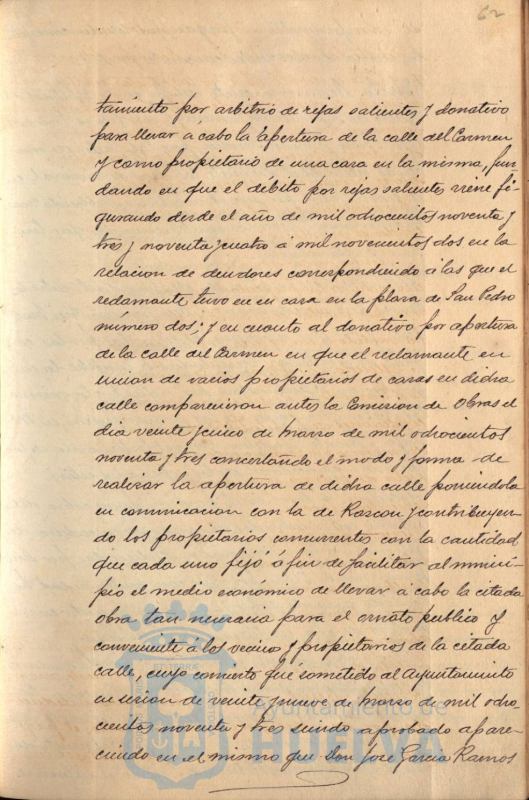 62
tamiento por arbitrio de rejas salientes y donativo
para llevar á cabo la apertura de la calle del Carmen
y como propietario de una casa en la misma, fun
dando en que el débito por rejas salientes viene fi-
gurando desde el año de mil ochocientos noventa y
tres y noventa y cuatro á mil novecientos dos en la
relacion de deudores correspondiendo á las que el
reclamante tuvo en su casa en la plaza de San Pedro
número dos; y en cuanto al donativo por apertura
de la calle del Carmen en que el reclamante en
union de varios propietarios de casas en dicha
calle comparecieron antes la Comision de Obras el
dia veinte y cinco de Marzo de mil ochocientos
noventa y tres concertando el modo y forma de
realizar la apertura de dicha calle poniendola
en comunicacion con la de Rascon y contribuyen-
do los propietarios concurrentes con la cantidad
que cada uno fijó á fin de facilitar al munici-
pio el medio económico de llevar á cabo la citada
obra tan necesaria para el ornato publico y
conveniente á los vecinos y propietarios de la citada
calle, cuyo concierto fué sometido al Ayuntamiento
en sesion de veinte y nueve de Marzo de mil ocho-
cientos noventa y tres siendo aprobado apare-
ciendo en el mismo que Don José García Ramos
Ayuntamiento de
HUELVA